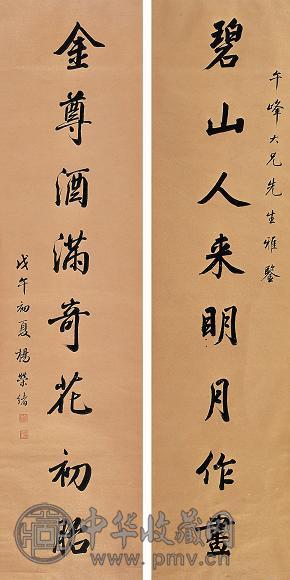 午峰大兄先生雅鑒
碧山人来明月作畫
金尊酒滿奇花初胎
戊午初夏楊榮緒
中华收藏网
www.pmv.cn